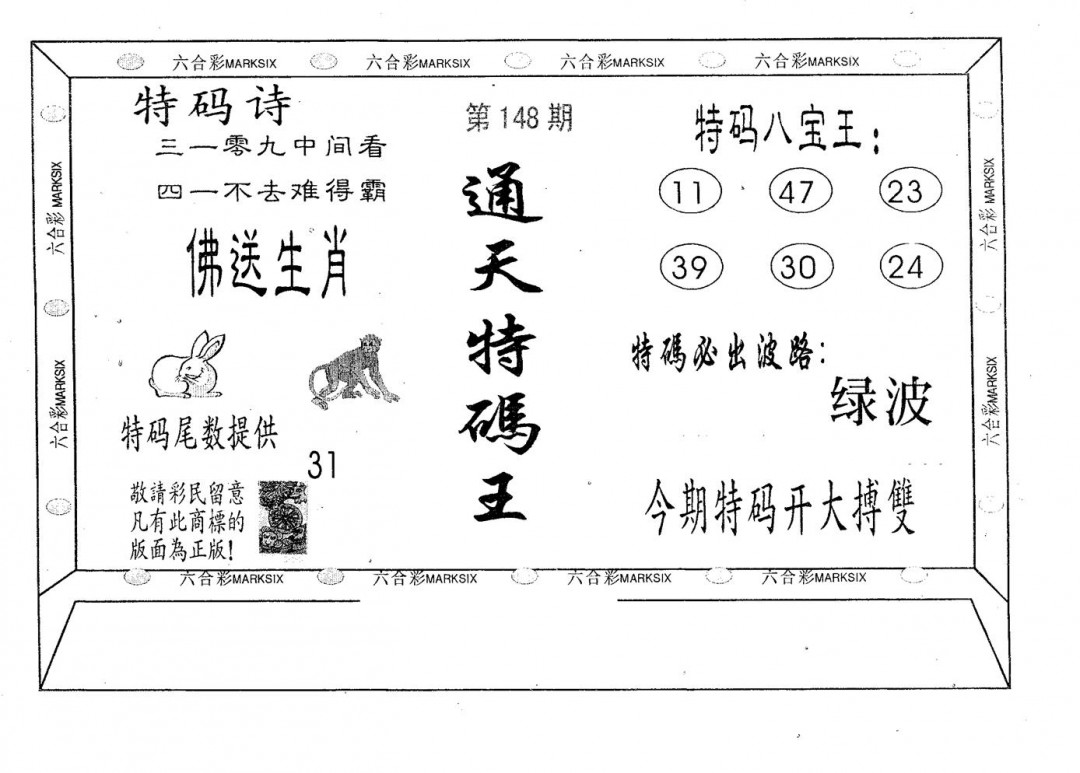 六合彩MARKSIX 六合彩MARKSIX 六合彩MARKSIX 六合彩MARKSIX
六合彩MARKSIX
六合彩MARKSIX
特码诗
三一零九中间看
四一不去难得霸
佛送生肖
特码尾数提供
31
敬請彩民留意
凡有此商標的
版面為正版!
第148期
通天特碼王
特码八宝王:
11 47 23
39 30 24
特碼必出波路:
绿波
今期特码开大搏雙
六合彩MARKSIX
六合彩MARKSIX
六合彩MARKSIX 六合彩MARKSIX 六合彩MARKSIX 六合彩MARKSIX